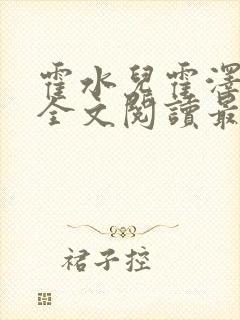 霍水兒霍澤
全文閱讀最
裙子控